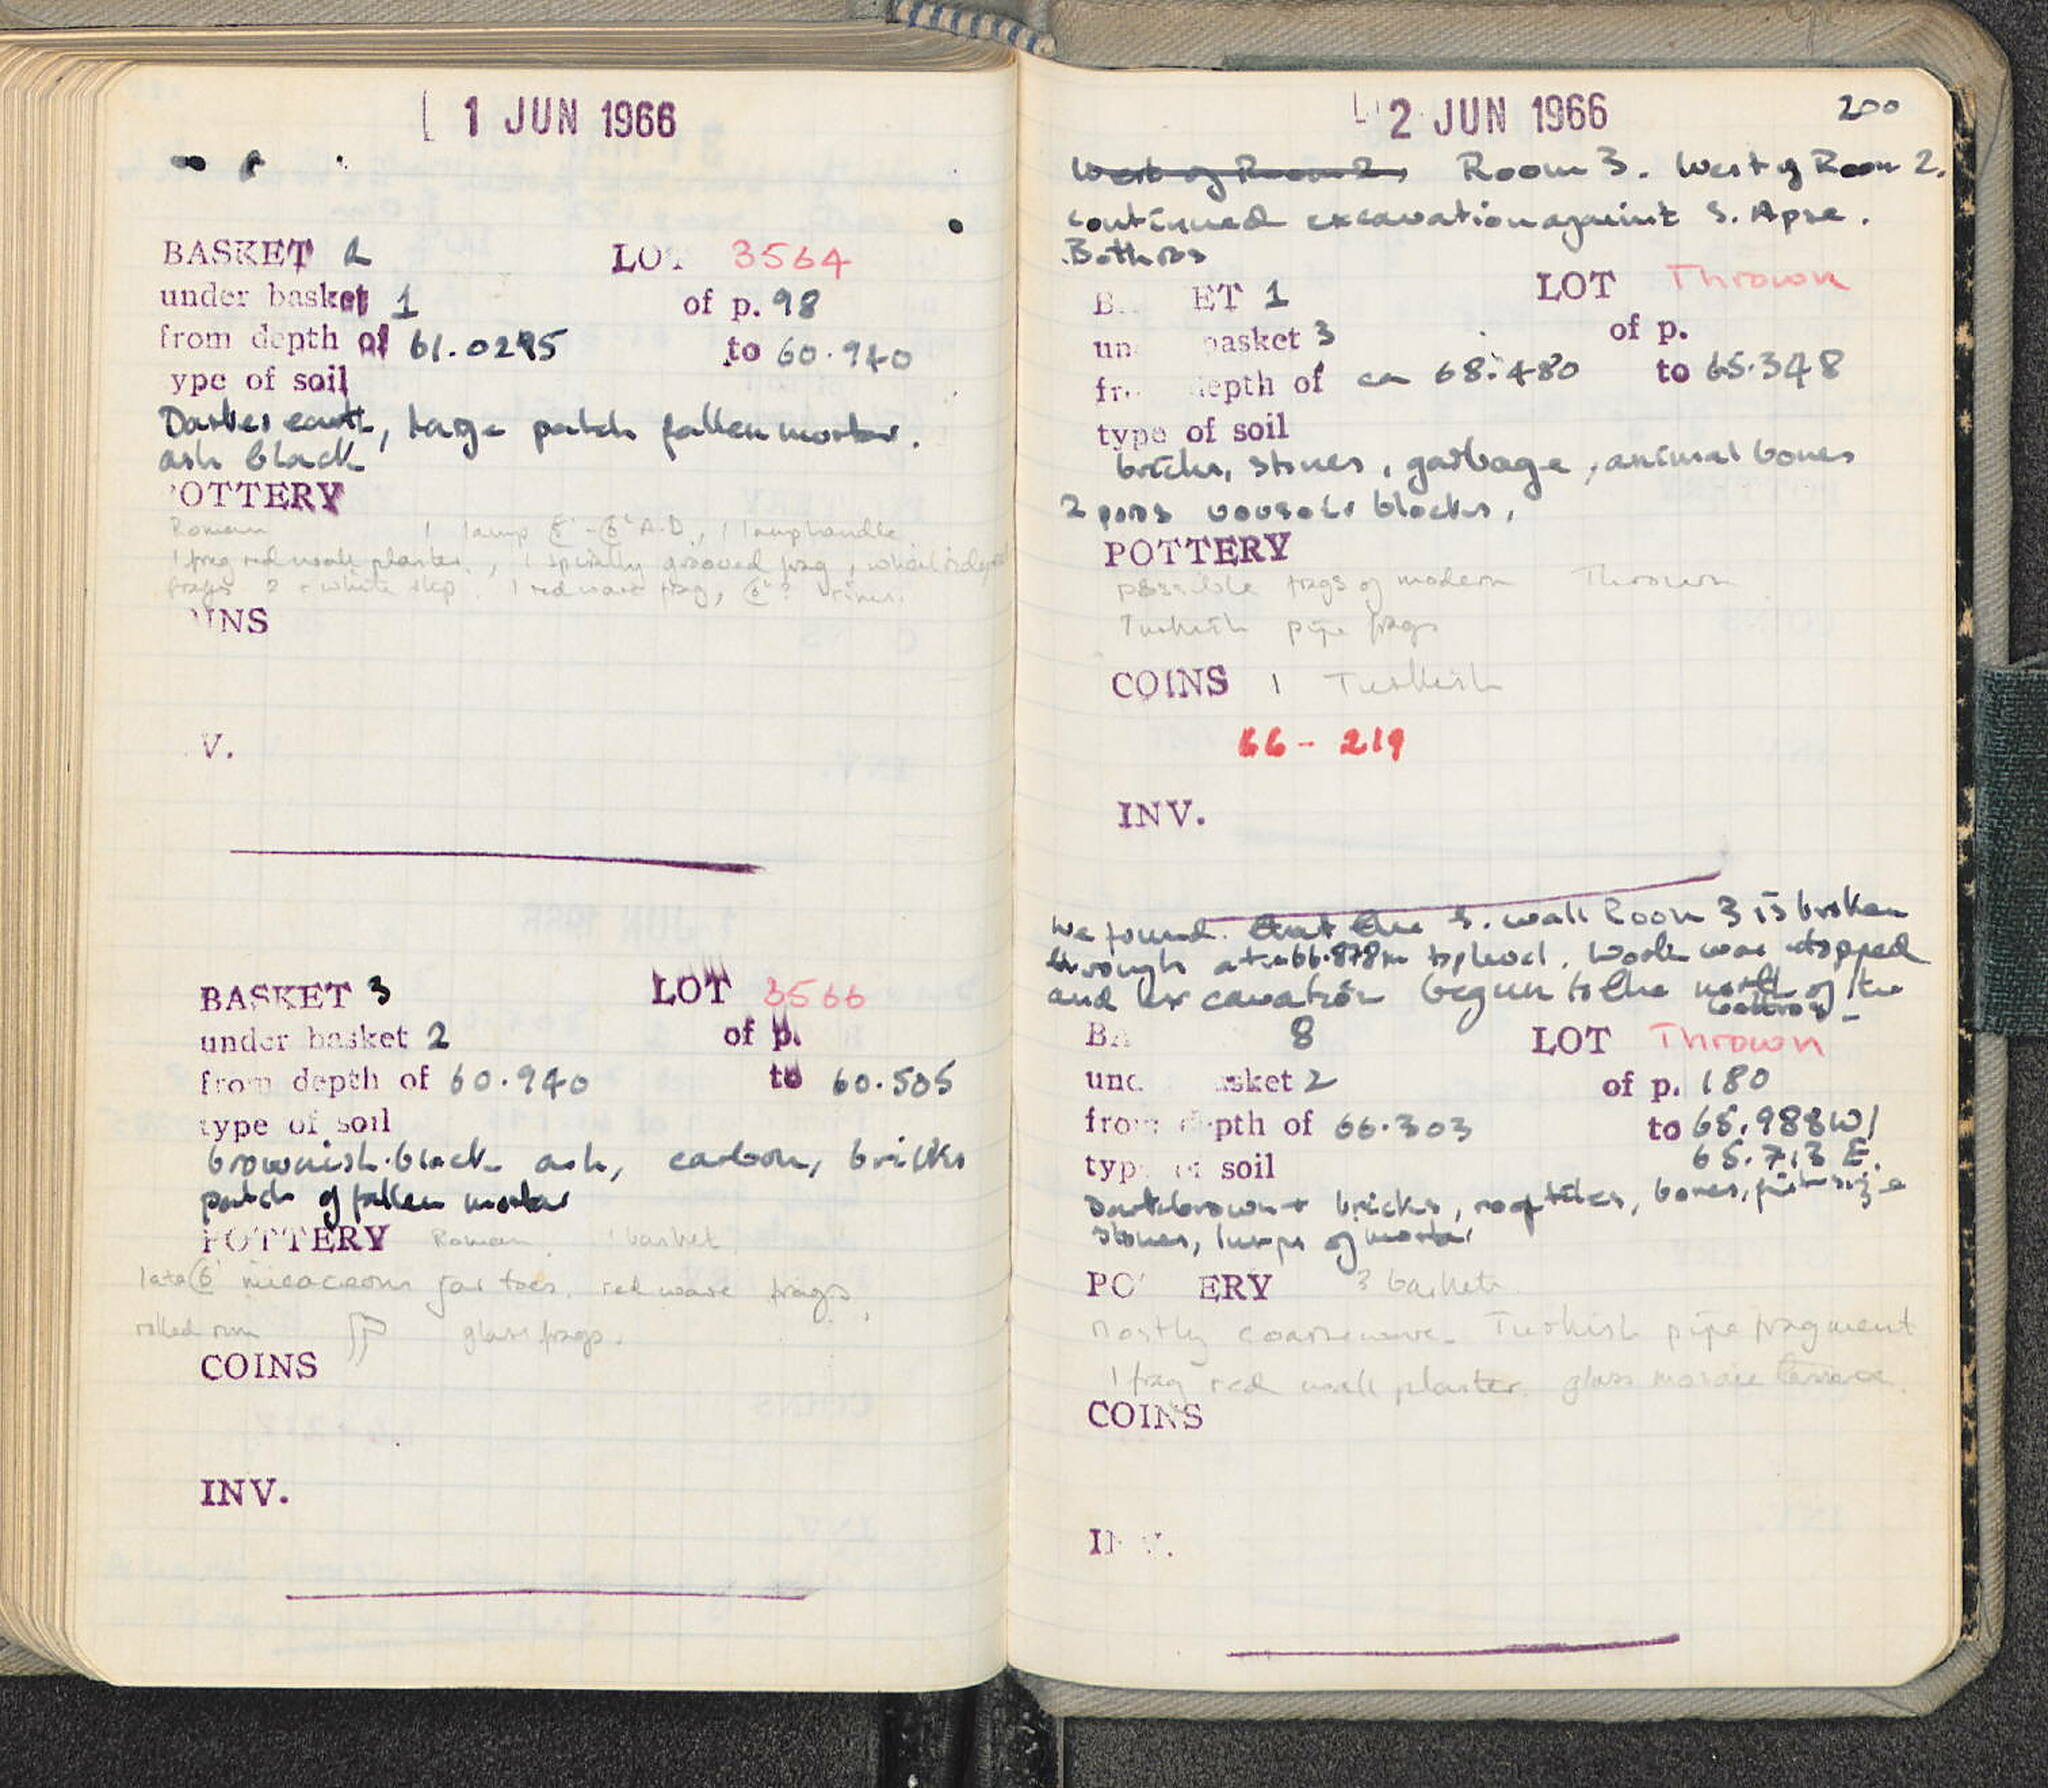 1 JUN 1966
BASKET 2 LOT 3564
under basket 1 of p. 98
from depth of 61.0295 to 60.940
ype of soil
Darker earth, large patch fallen mortar.
ash black
OTTERY
Roman 1 lamp 5' - 6' A.D., 1 lamp handle
1 frag red wall plaster, 1 spirally grooved frag, wheelridged
frags 2 white slip. 1 redware frag, 6'?
INS
V.
BASKET 3 LOT 3566
under basket 2 of p.
from depth of 60.940 to 60.505
type of soil
brownish-black ash, carbon, bricks
patch of fallen mortar
POTTERY Roman. 1 basket
late 6' micaceous jar toes, red ware frags,
rolled rim glass frags.
COINS
INV.
2 JUN 1966 200
West of Room 2, Room 3. West of Room 2.
continued excavation against S. Apse.
Bothros
B ET 1 LOT Thrown
un basket 3 of p.
fr depth of ca 68.480 to 65.348
type of soil
bricks, stones, garbage, animal bones
2 poros voussoir blocks.
POTTERY
possible frags of modern Thrown
Turkish pipe frags
COINS 1 Turkish
66 - 219
INV.
We found that the S. wall Room 3 is broken
through at 66.878m toplevel. Work was stopped
and excavation begun to the north of the
bothros -
BA 8 LOT Thrown
und sket 2 of p. 180
from depth of 66.303 to 65.988 W/
65.713 E.
type of soil
Dark brown + bricks, rooftiles, bones, fist size
stones, lumps of mortar
PO ERY 3 baskets
Mostly coarseware. Turkish pipe fragment
1 frag red wall plaster. glass mosaic tessera.
COINS
IN V.